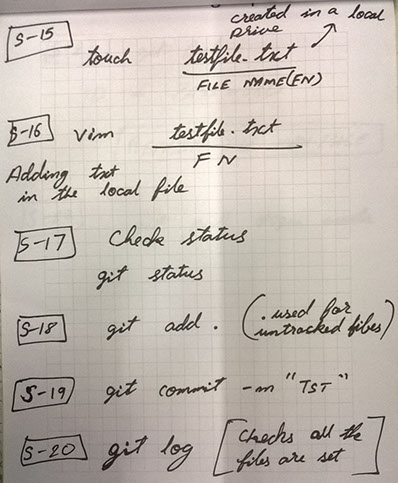 created in a local
drive
S-15
touch testfile.txt
FILE NAME(FN)
S-16 vim testfile.txt
FN
Adding txt
in the local file
S-17 Check status
git status
S-18 git add . (. used for
untracked files)
S-19 git commit -m "TST"
S-20 git log [Checks all the
files are set]